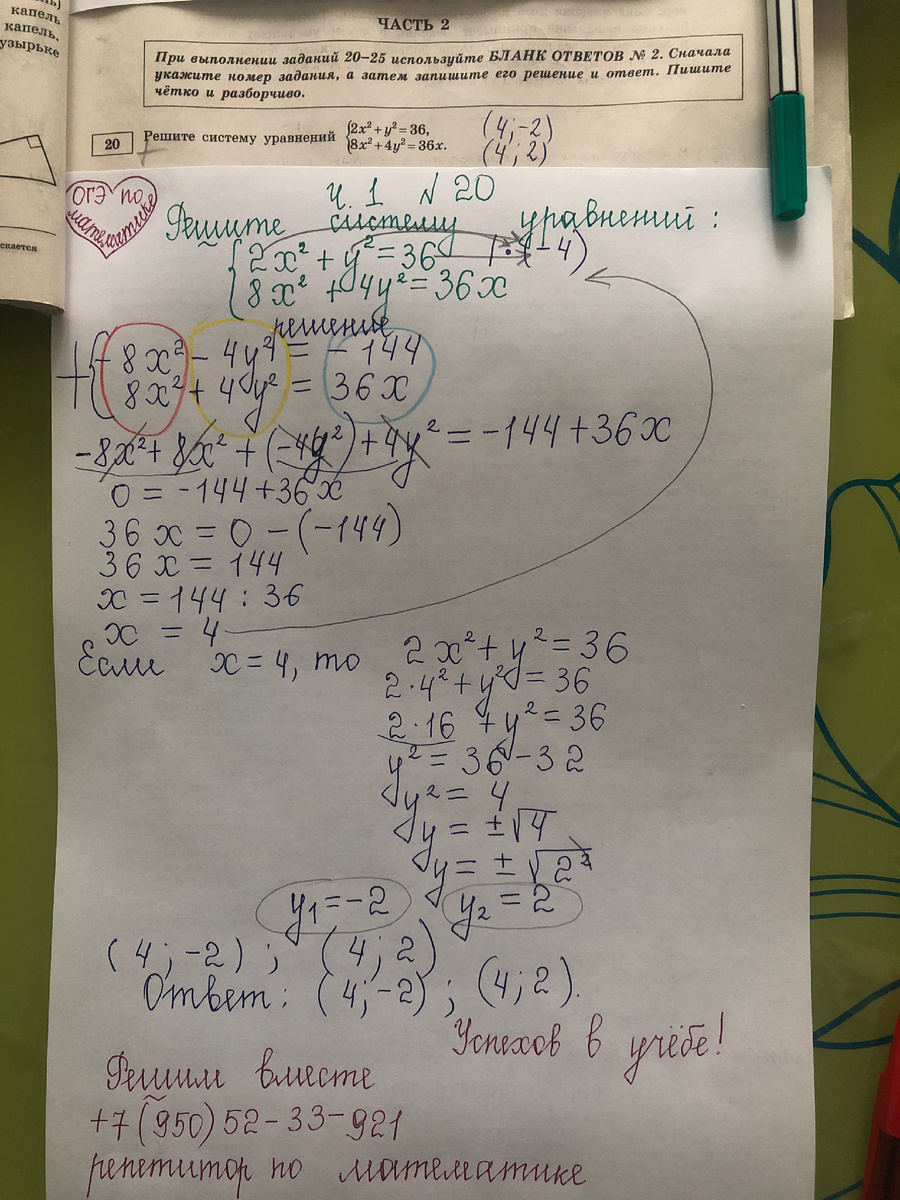 капель
капель,
узырьке
скается
ЧАСТЬ 2
При выполнении заданий 20–25 используйте БЛАНК ОТВЕТОВ № 2. Сначала
укажите номер задания, а затем запишите его решение и ответ. Пишите
чётко и разборчиво.
20 Решите систему уравнений {2x² + y² = 36,
8x² + 4y² = 36x.
(4;-2)
(4;2)
ОГЭ по
математике
ч. 1 N 20
Решите систему уравнений:
{2x² + y² = 36 | · (-4)
8x² + 4y² = 36x
решение
+ {-8x² - 4y² = -144
8x² + 4y² = 36x
-8x² + 8x² + (-4y²) + 4y² = -144 + 36x
0 = -144 + 36x
36x = 0 - (-144)
36x = 144
x = 144 : 36
x = 4
Если x = 4, то 2x² + y² = 36
2·4² + y² = 36
2·16 + y² = 36
y² = 36 - 32
y² = 4
y = ±√4
y = ±√2²
y₁ = -2 y₂ = 2
(4;-2); (4;2)
Ответ: (4;-2); (4;2).
Успехов в учёбе!
Решим вместе
+7(950)52-33-921
репетитор по математике